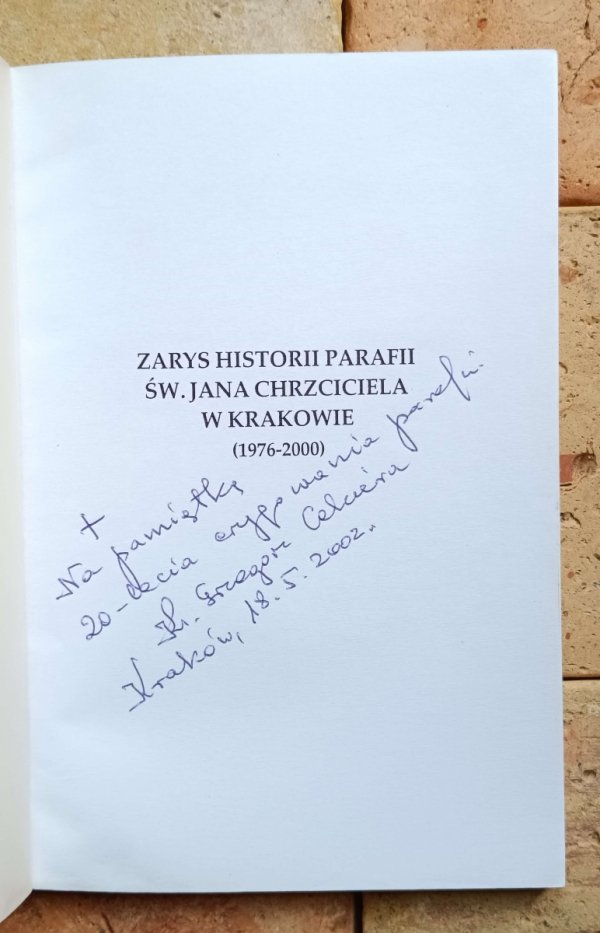 ZARYS HISTORII PARAFII
ŚW. JANA CHRZCICIELA
W KRAKOWIE
(1976-2000)
+
Na pamiątkę
20-lecia erygowania parafii.
Ks. Grzegorz Cekiera
Kraków, 18.5.2002r.